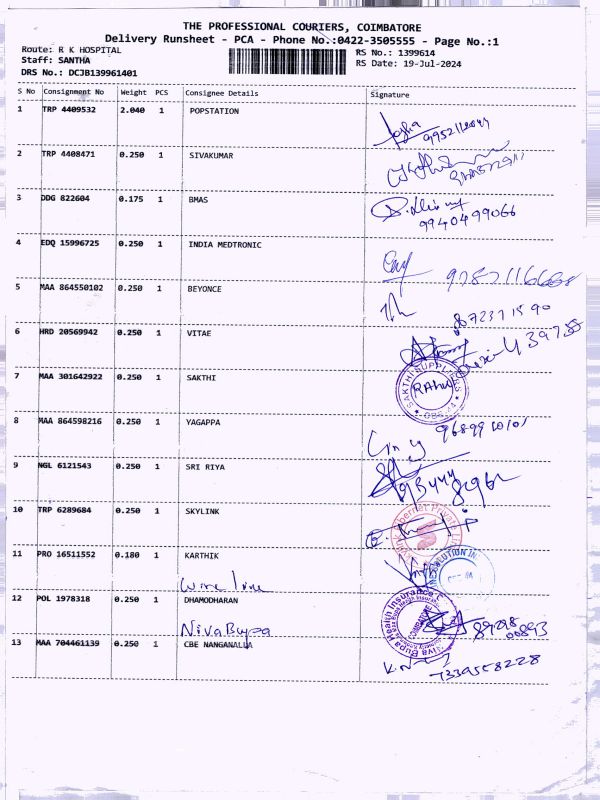 THE PROFESSIONAL COURIERS, COIMBATORE
Delivery Runsheet - PCA - Phone No.:0422-3505555 - Page No.:1
Route: R K HOSPITAL
RS No.: 1399614
Staff: SANTHA
RS Date: 19-Jul-2024
DRS No.: DCJB139961401
S No Consignment No Weight PCS Consignee Details Signature
1 TRP 4409532 2.040 1 POPSTATION
2 TRP 4408471 0.250 1 SIVAKUMAR
3 DDG 822604 0.175 1 BMAS
9940499066
4 EDQ 15996725 0.250 1 INDIA MEDTRONIC
5 MAA 864550102 0.250 1 BEYONCE
6 HRD 20569942 0.250 1 VITAE
7 MAA 301642922 0.250 1 SAKTHI
SAKTHI SUPPLIERS
8 MAA 864598216 0.250 1 YAGAPPA
9 NGL 6121543 0.250 1 SRI RIYA
10 TRP 6289684 0.250 1 SKYLINK
11 PRO 16511552 0.180 1 KARTHIK
wire line
12 POL 1978318 0.250 1 DHAMODHARAN
Niva Bupa
13 MAA 704461139 0.250 1 CBE NANGANALLUR
7339558228